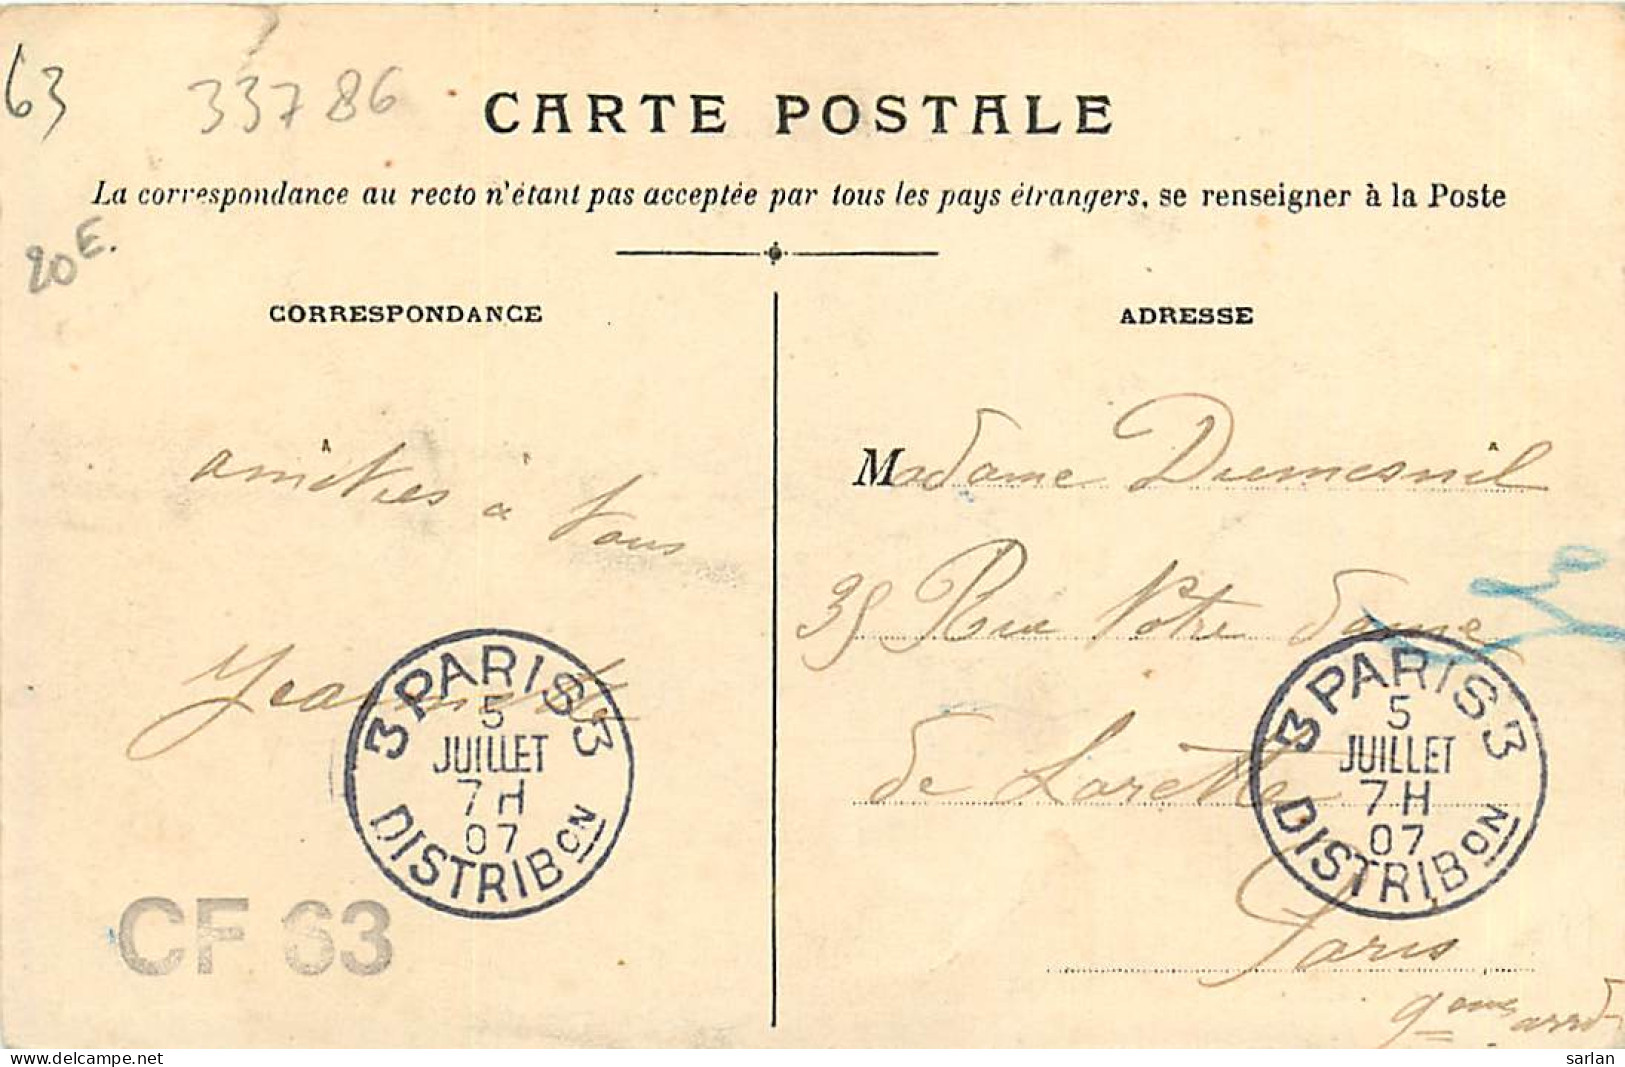 63
33786
CARTE POSTALE
La correspondance au recto n'étant pas acceptée par tous les pays étrangers, se renseigner à la Poste
20E.
CORRESPONDANCE
amitiés à tous
Jeannette
3 PARIS 3
5
JUILLET
7H
07
DISTRIBON
CF 63
ADRESSE
Madame Dumesnil
35 Rue Notre Dame
de Lorette
Paris
9ème arrd
3 PARIS 3
5
JUILLET
7H
07
DISTRIBON
www.delcampe.net
sarlan